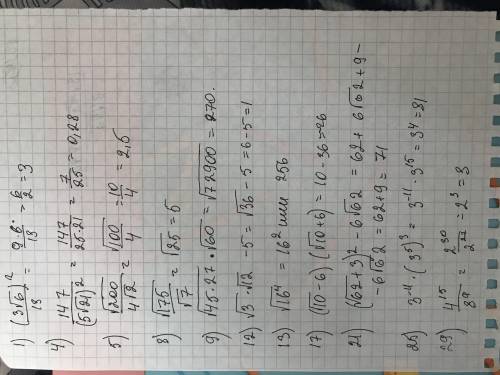 1) (3√6)²/18 = 9·6/18 = 6/2 = 3
4) 147/(5√21)² = 147/25·21 = 7/25 = 0,28
5) √200/4√2 = √100/4 = 10/4 = 2,5
8) √175/√7 = √25 = 5
9) √45·27·√60 = √72900 = 270.
12) √3·√12 - 5 = √36 - 5 = 6 - 5 = 1
13) √16⁴ = 16² или 256
17) (√10 - 6)(√10 + 6) = 10 - 36 = -26
21) (√62 + 3)² - 6√62 = 62 + 6√62 + 9 -
- 6√62 = 62 + 9 = 71
25) 3⁻¹¹·(3⁵)³ = 3⁻¹¹·3¹⁵ = 3⁴ = 81
29) 4¹⁵/8⁹ = 2³⁰/2²⁷ = 2³ = 8